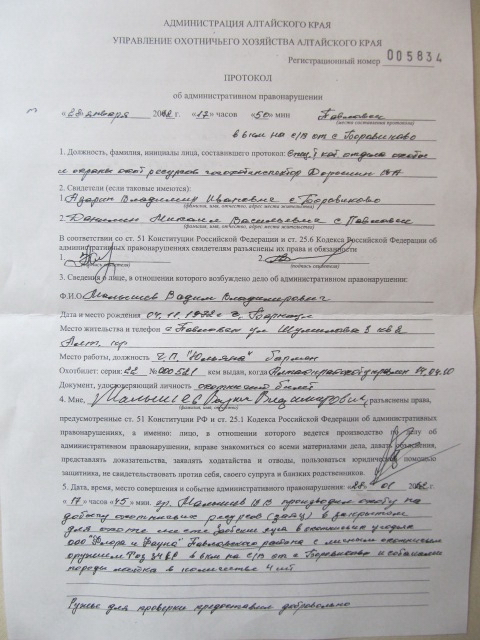 АДМИНИСТРАЦИЯ АЛТАЙСКОГО КРАЯ
УПРАВЛЕНИЕ ОХОТНИЧЬЕГО ХОЗЯЙСТВА АЛТАЙСКОГО КРАЯ
Регистрационный номер 005834
ПРОТОКОЛ
об административном правонарушении
«28» января 2012 г. «17» часов «50» мин Павловск
(место составления протокола)
в 6 км на с/в от с Боровиково
1. Должность, фамилия, инициалы лица, составившего протокол: спец 1 кат отдела охоты
и охраны охот ресурсов госохотинспектор
2. Свидетели (если таковые имеются):
1. Владимир Иванович с Боровиково
(фамилия, имя, отчество, адрес места жительства)
2. Михаил Васильевич с Павловск
(фамилия, имя, отчество, адрес места жительства)
В соответствии со ст. 51 Конституции Российской Федерации и ст. 25.6 Кодекса Российской Федерации об
административных правонарушениях свидетелям разъяснены их права и обязанности
1. 2.
(подпись свидетеля) (подпись свидетеля)
3. Сведения о лице, в отношении которого возбуждено дело об административном правонарушении:
Ф.И.О. Малышев Вадим Владимирович
(фамилия, имя, отчество)
Дата и место рождения 04.11.1972 г г. Барнаул
Место жительства и телефон с Павловск ул Шумилова 3 кв 2
Алт. кр
Место работы, должность Ч.П. "Юльяна" бармен
Охотбилет: серия: 22 № 000521 кем выдан, когда
Документ, удостоверяющий личность охотничий билет
4. Мне, Малышев Вадим Владимирович разъяснены права,
(фамилия, имя, отчество)
предусмотренные ст. 51 Конституции РФ и ст. 25.1 Кодекса Российской Федерации об административных
правонарушениях, а именно: лицо, в отношении которого ведется производство по делу об
административном правонарушении, вправе знакомиться со всеми материалами дела, давать объяснения,
представлять доказательства, заявлять ходатайства и отводы, пользоваться юридической помощью
защитника, не свидетельствовать против себя, своего супруга и близких родственников.
5. Дата, время, место совершения и событие административного правонарушения: «28» 01 2012 г.
«17» часов «45» мин. гр. Малышев В.В производил охоту на
добычу охотничьих ресурсов (заяц) в закрытом
для охоты месте в охотничьих угодьях
ООО "Флора и Фауна" Павловского района с личным охотничьим
оружием в 6 км на с/в от с Боровиково и собаками
породы лайка в количестве 4 шт
Ружье для проверки предоставил добровольно